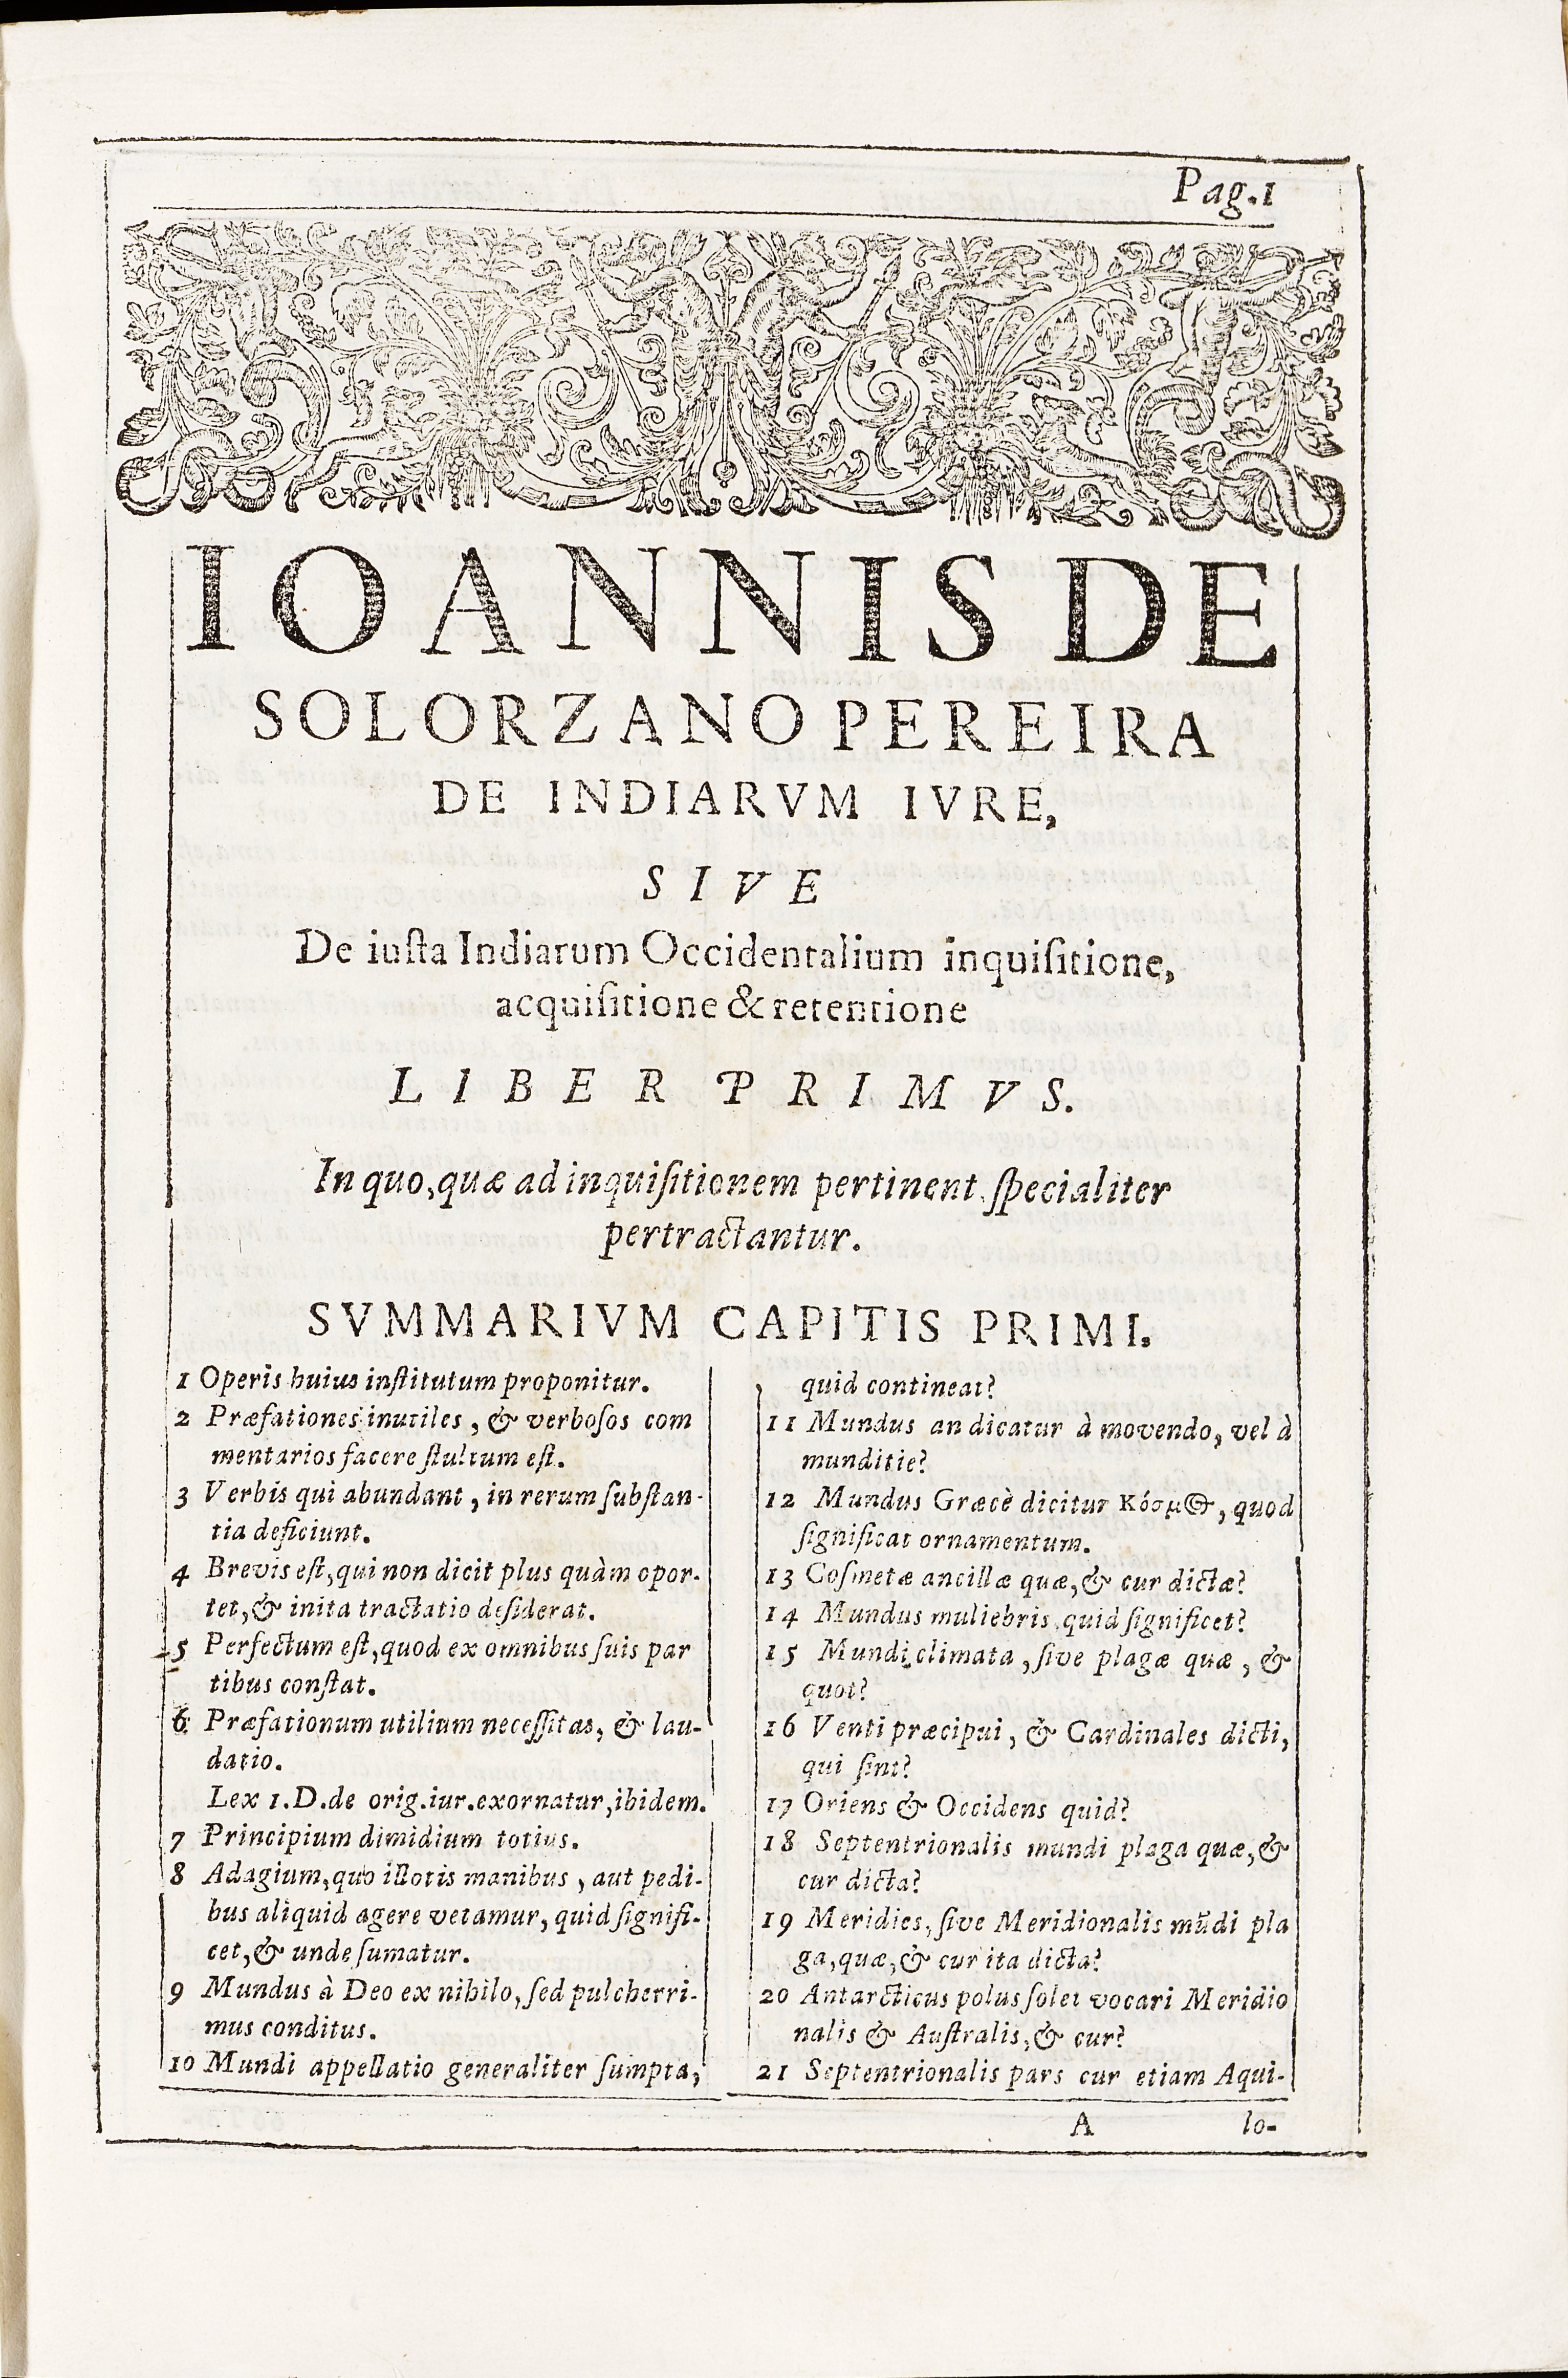 Pag.1
IOANNIS DE
SOLORZANO PEREIRA
DE INDIARVM IVRE,
SIVE
De iuſta Indiarum Occidentalium inquiſitione,
acquiſitione & retentione
LIBER PRIMVS.
In quo, quæ ad inquiſitionem pertinent ſpecialiter
pertractantur.
SVMMARIVM CAPITIS PRIMI.
1 Operis huius inſtitutum proponitur.
2 Præfationes inutiles, & verboſos com
mentarios facere ſtultum eſt.
3 Verbis qui abundant, in rerum ſubſtan-
tia deficiunt.
4 Brevis eſt, qui non dicit plus quàm opor-
tet, & inita tractatio deſiderat.
5 Perfectum eſt, quod ex omnibus ſuis par
tibus conſtat.
6 Præfationum utilium neceſſitas, & lau-
datio.
Lex 1.D.de orig.iur.exornatur, ibidem.
7 Principium dimidium totius.
8 Adagium, quo illotis manibus, aut pedi-
bus aliquid agere vetamur, quid ſignifi-
cet, & unde ſumatur.
9 Mundus à Deo ex nihilo, ſed pulcherri-
mus conditus.
10 Mundi appellatio generaliter ſumpta,
quid contineat?
11 Mundus an dicatur à movendo, vel à
munditie?
12 Mundus Græcè dicitur Κόσμος, quod
ſignificat ornamentum.
13 Coſmetæ ancillæ quæ, & cur dictæ?
14 Mundus muliebris quid ſignificet?
15 Mundi climata, ſive plagæ quæ, &
quot?
16 Venti præcipui, & Cardinales dicti,
qui ſint?
17 Oriens & Occidens quid?
18 Septentrionalis mundi plaga quæ, &
cur dicta?
19 Meridies, ſive Meridionalis mũdi pla
ga, quæ, & cur ita dicta?
20 Antarcticus polus ſolet vocari Meridio
nalis & Auſtralis, & cur?
21 Septentrionalis pars cur etiam Aqui-
A lo-